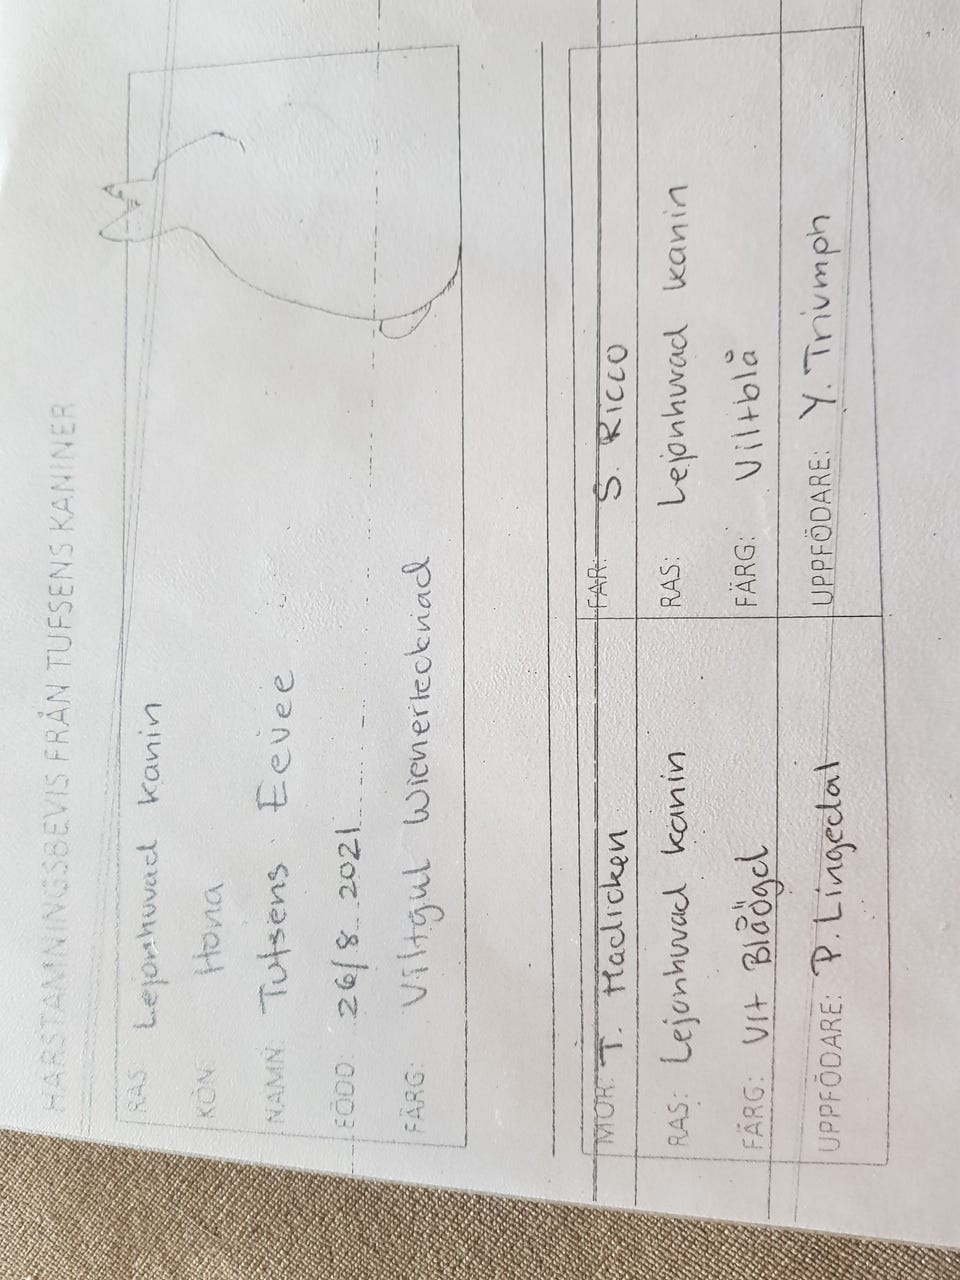 HÄRSTAMNINGSBEVIS FRÅN TUFSENS KANINER
RAS Lejonhuvad kanin
KÖN: Hona
NAMN: Tufsens Eevee
FÖDD: 26/8 2021
FÄRG: Viltgul Wienertecknad
MOR: T. Madicken
RAS: Lejonhuvad kanin
FÄRG: Vit Blåögd
UPPFÖDARE: P. Lingedal
FAR: S. Ricco
RAS: Lejonhuvad kanin
FÄRG: Viltblå
UPPFÖDARE: Y. Triumph